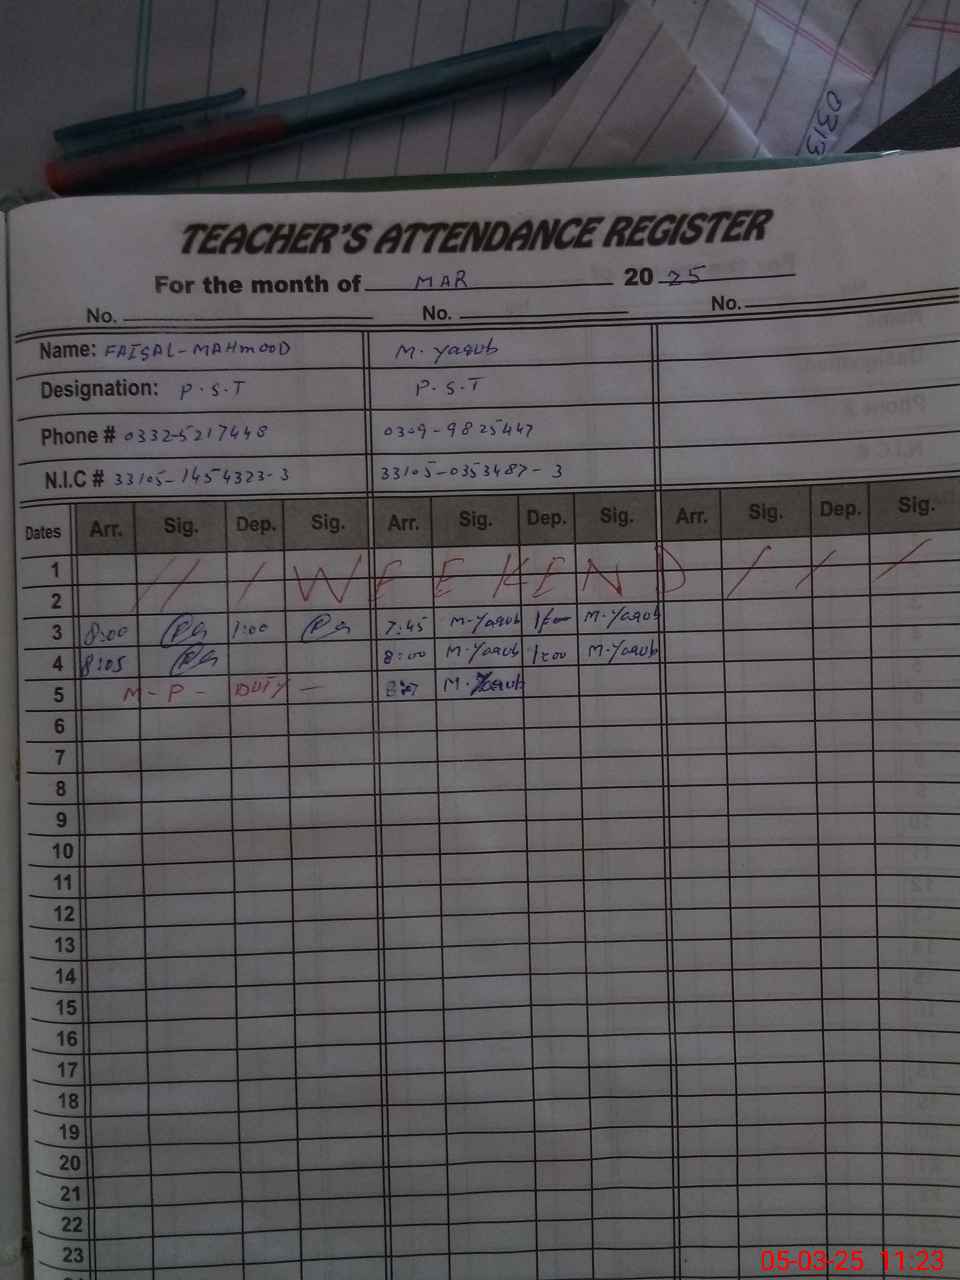 0313
TEACHER'S ATTENDANCE REGISTER
For the month of MAR 20 25
No. No. No.
Name: FAISAL-MAHMOOD M. Yaqub
Designation: P.S.T P.S.T
Phone # 0332-5217448 0309-9825447
N.I.C # 33105-1454323-3 33105-0353487-3
Dates Arr. Sig. Dep. Sig. Arr. Sig. Dep. Sig. Arr. Sig. Dep. Sig.
1 / / / WEEKEND / / /
2
3 8:00 1:00 7:45 M.Yaqub M.Yaqub
4 8:05 8:00 M.Yaqub 1:00 M.Yaqub
5 M-P- DUTY - M.Yaqub
6
7
8
9
10
11
12
13
14
15
16
17
18
19
20
21
22
23
05-03-25 11:23